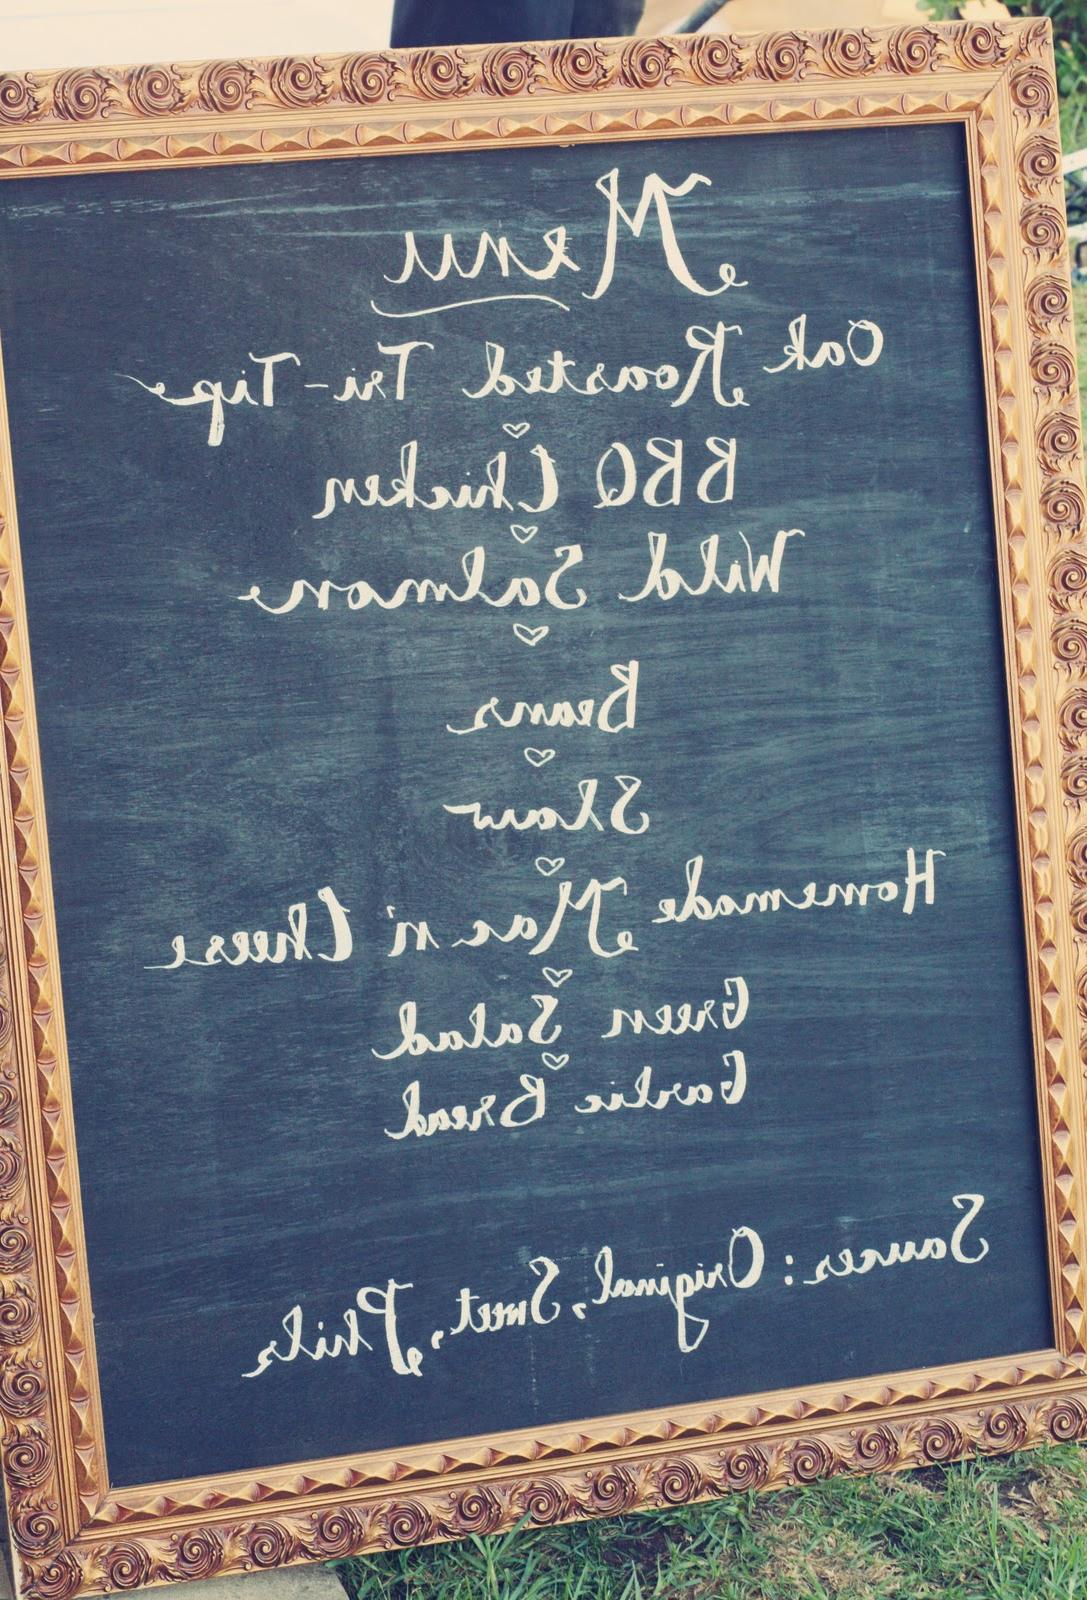 Menu
Oak Roasted Tri-Tip
BBQ Chicken
Wild Salmon
Beans
Slaw
Homemade Mac n' Cheese
Green Salad
Garlic Bread
Sauces: Original, Sweet, Phils